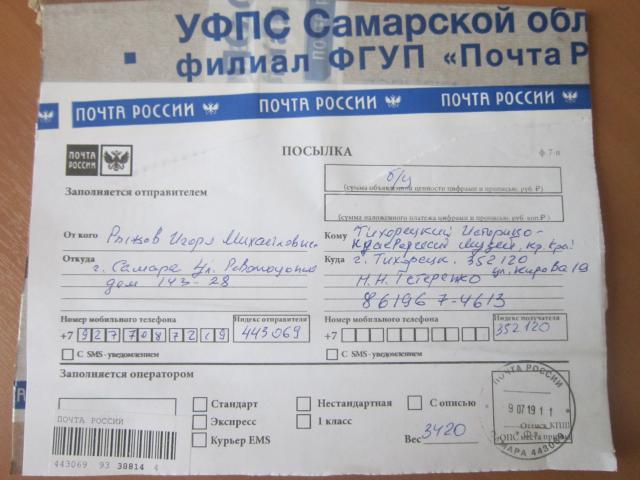 УФПС Самарской обл
филиал ФГУП «Почта Р
ПОЧТА РОССИИ ПОЧТА РОССИИ ПОЧТА РОССИИ
ПОЧТА РОССИИ
ПОСЫЛКА
ф. 7-п
б/ц
(сумма объявленной ценности цифрами и прописью, руб. ₽)
Заполняется отправителем
(сумма наложенного платежа цифрами и прописью, руб. коп. ₽)
От кого Рыжов Игорь Михайлович
Кому Тихорецкий Историко-
краеведческий музей, кр. Край
Откуда г. Самара ул. Революционная
дом 143-28
Куда г. Тихорецк. 352120
ул. Кирова 19
Н.Н.
861967-4613
Номер мобильного телефона Индекс отправителя
+7 9277087219 443069
С SMS-уведомлением
Номер мобильного телефона Индекс получателя
+7 352120
С SMS-уведомлением
Заполняется оператором
Стандарт Нестандартная С описью
Экспресс 1 класс
Курьер EMS
Вес 3420
ПОЧТА РОССИИ
443069 93 38814 4
ПОЧТА РОССИИ
9 07 19 11
Оттиск КПШ
ОПС места приема
САМАРА 443069